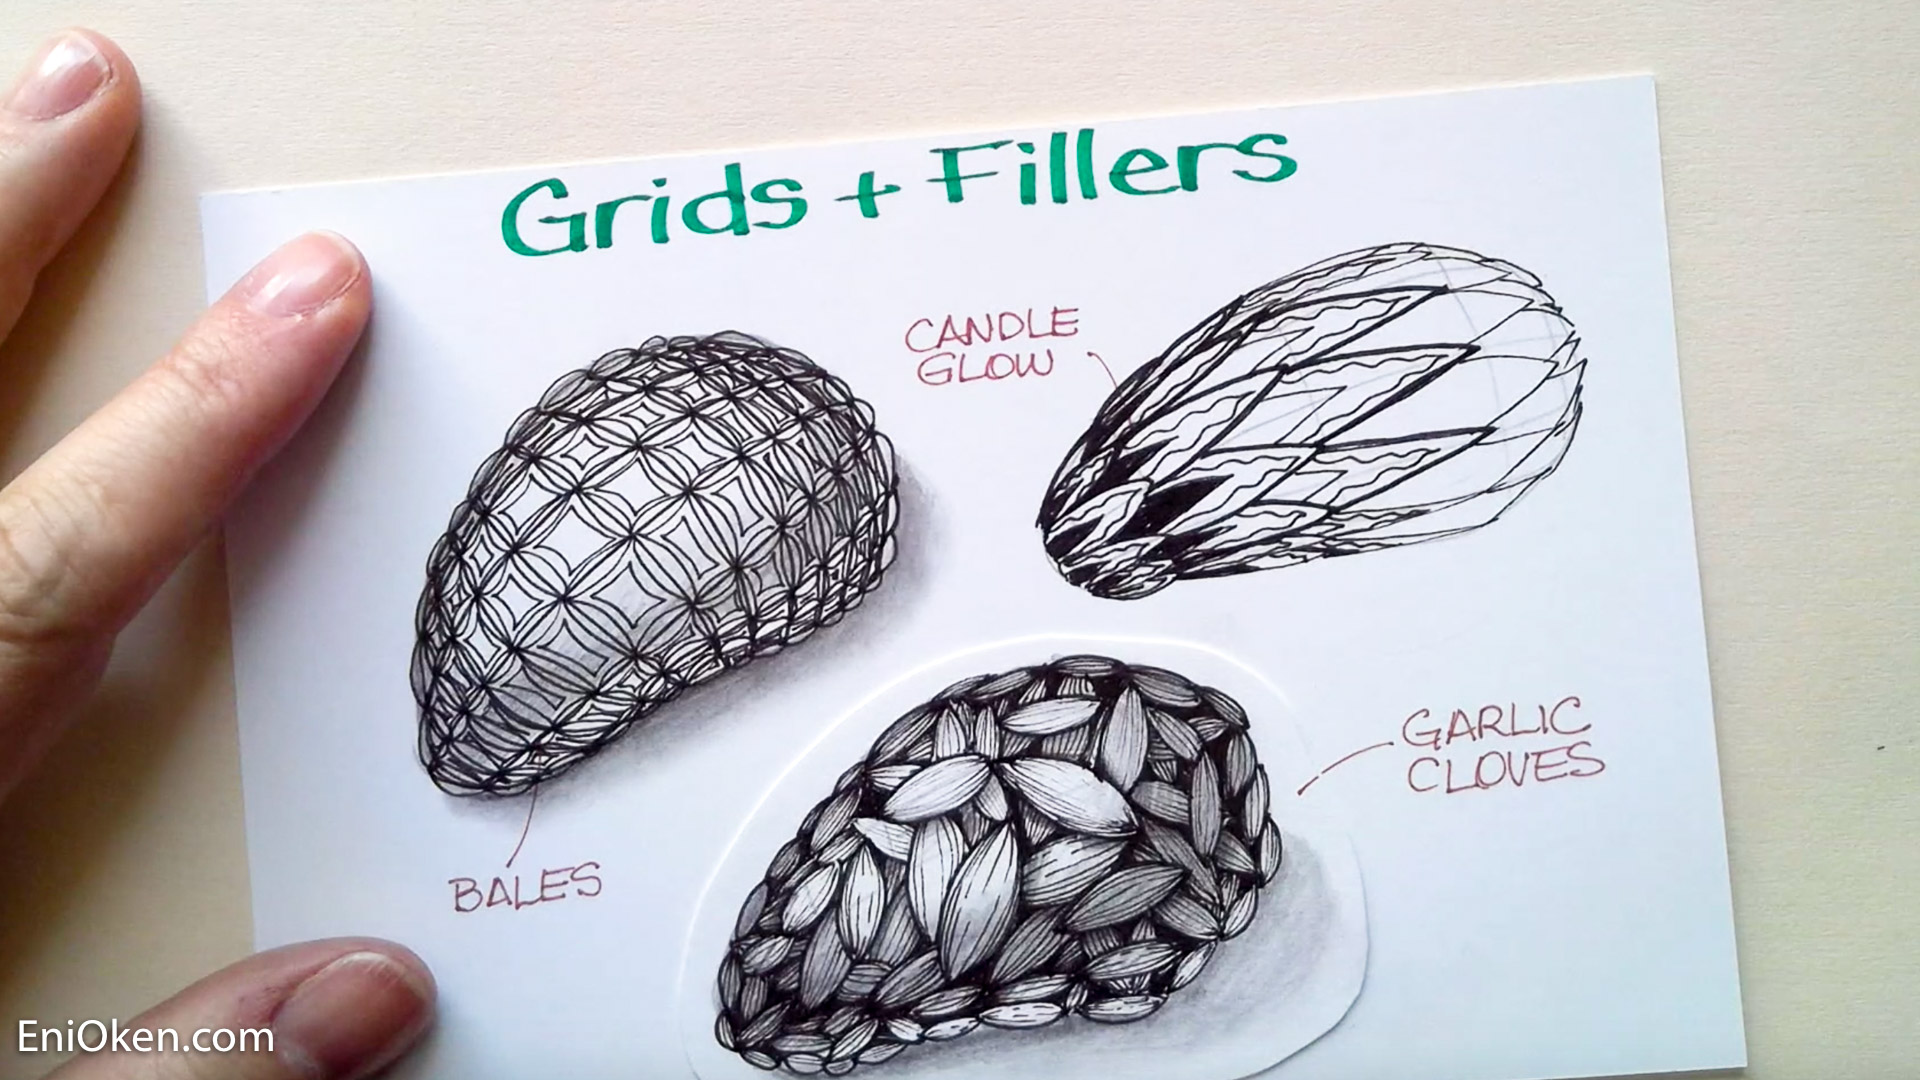 Grids + Fillers
CANDLE
GLOW
GARLIC
CLOVES
BALES
EniOken.com